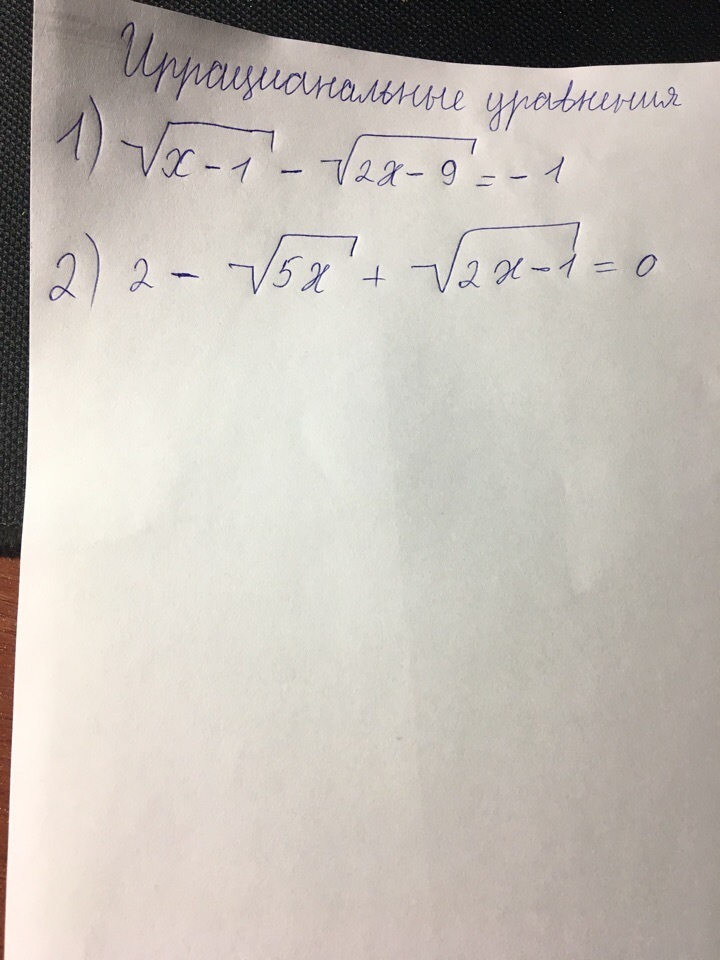 Иррацианальные уравнения
1) √(x-1) - √(2x-9) = -1
2) 2 - √(5x) + √(2x-1) = 0